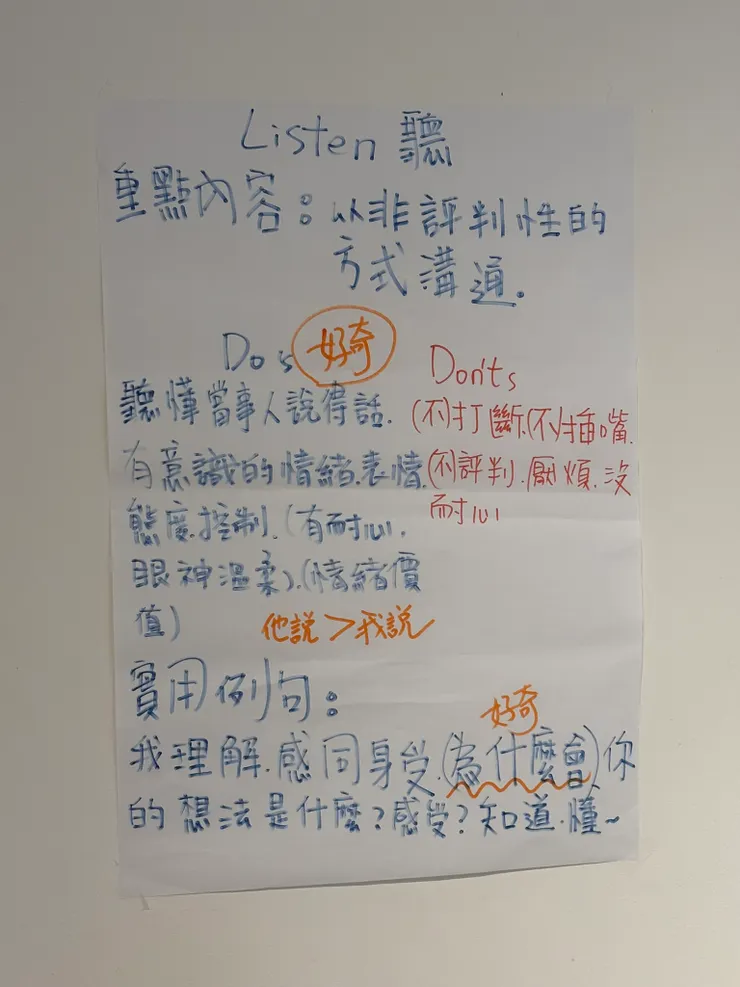 Listen 聽
重點內容：以非評判性的
方式溝通.
Do's 好奇
聽懂當事人說得話.
有意識的情緒.表情.
態度.控制.(有耐心.
眼神溫柔).(情緒價
值)
Don'ts
(不)打斷.(不)插嘴.
(不)評判.厭煩.沒
耐心
他說＞我說
實用例句：
好奇
我理解.感同身受.(為什麼會)你
的想法是什麼？感受？知道.懂~